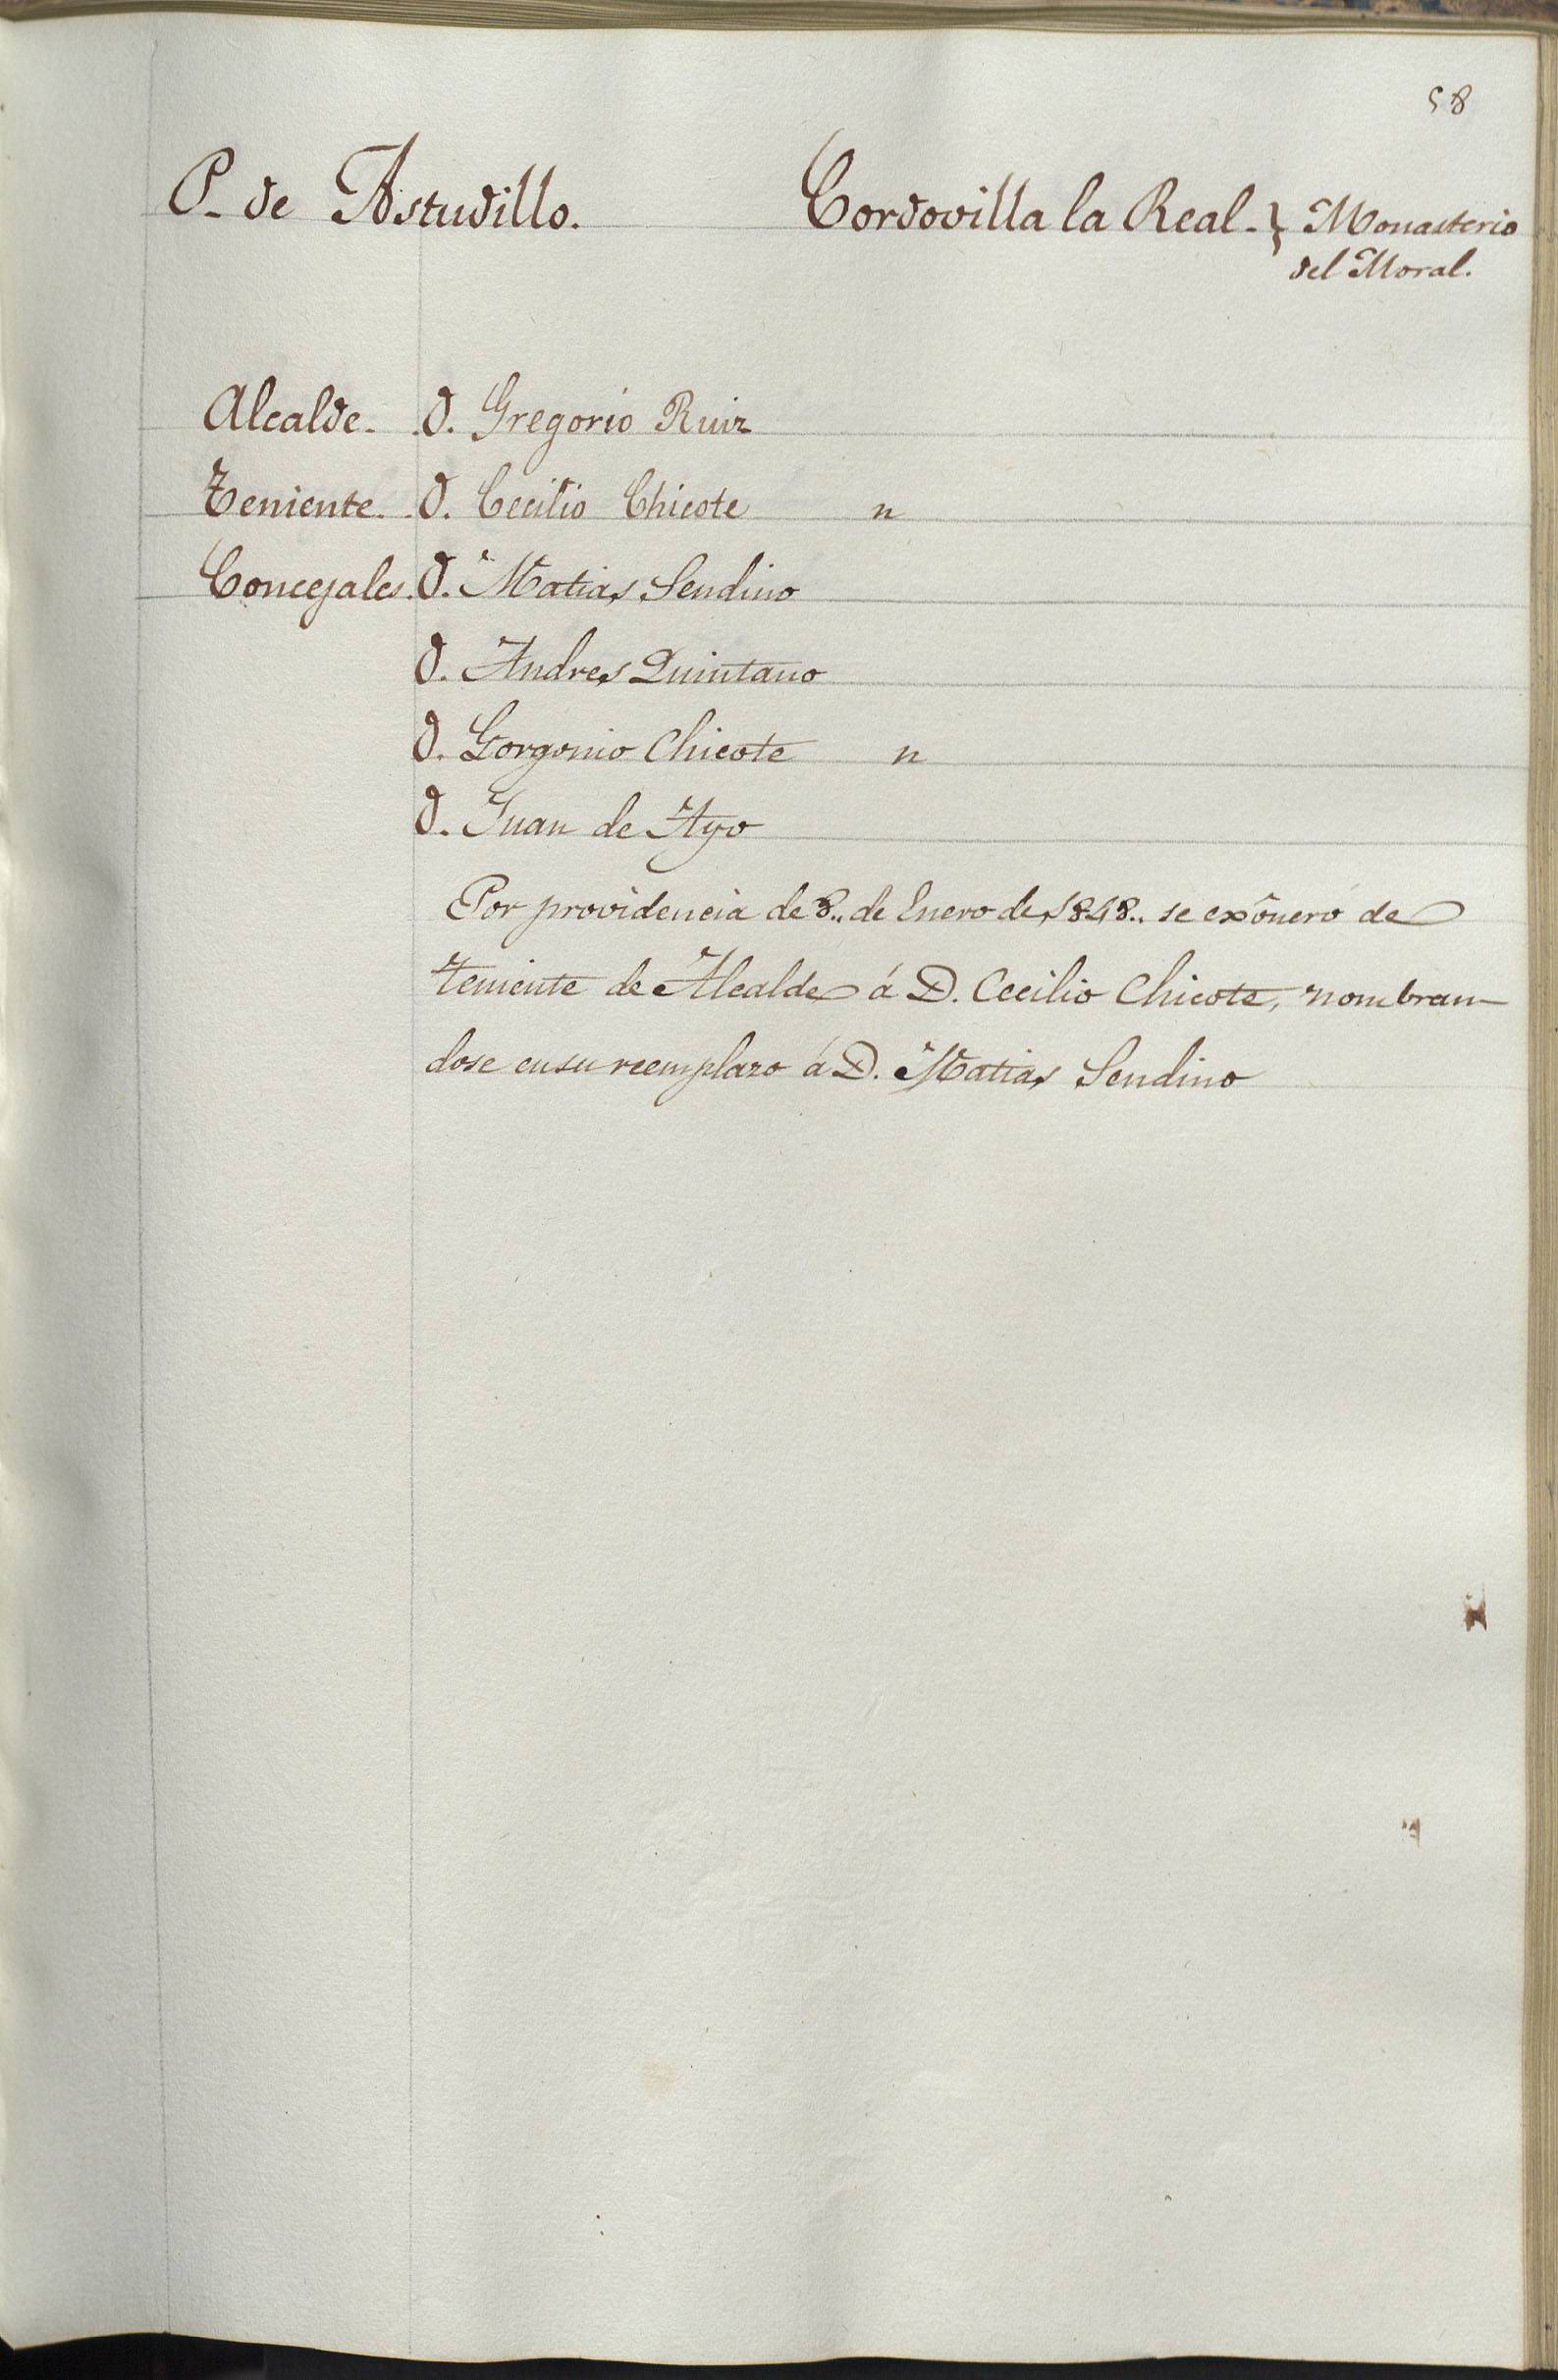 58
P. de Astudillo. Cordovilla la Real. } Monasterio
del Moral.
Alcalde. D. Gregorio Ruiz
Teniente. D. Cecilio Chicote n
Concejales. D. Matias Sendino
D. Andres Quintano
D. Gorgonio Chicote n
D. Juan de Ayo
Por providencia de 8.. de Enero de 1848.. se exôneró de
teniente de Alcalde á D. Cecilio Chicote, nombran-
dose en su reemplazo á D. Matias Sendino